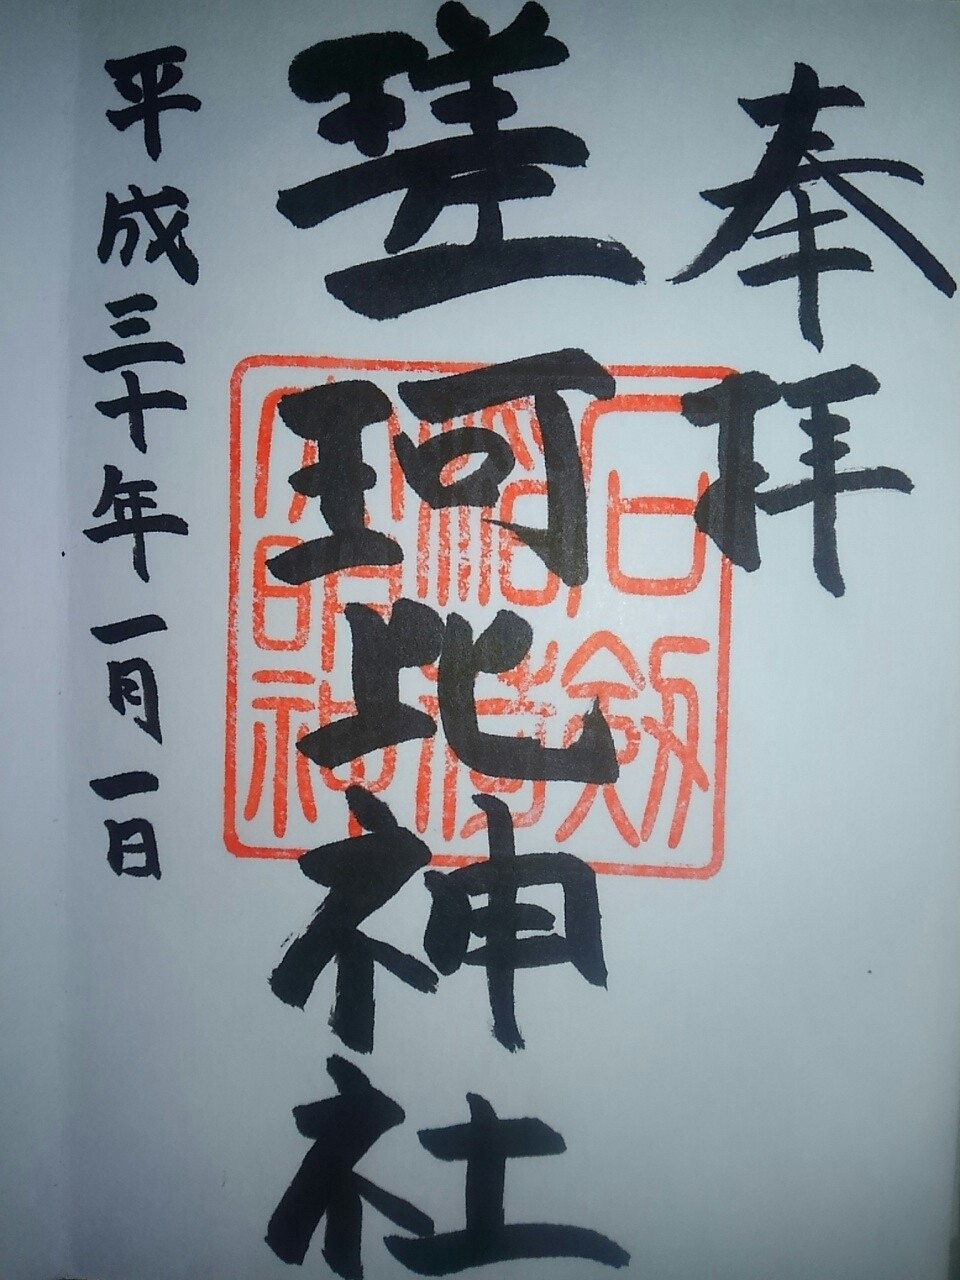 奉拝
瑳珂比神社
平成三十年一月一日